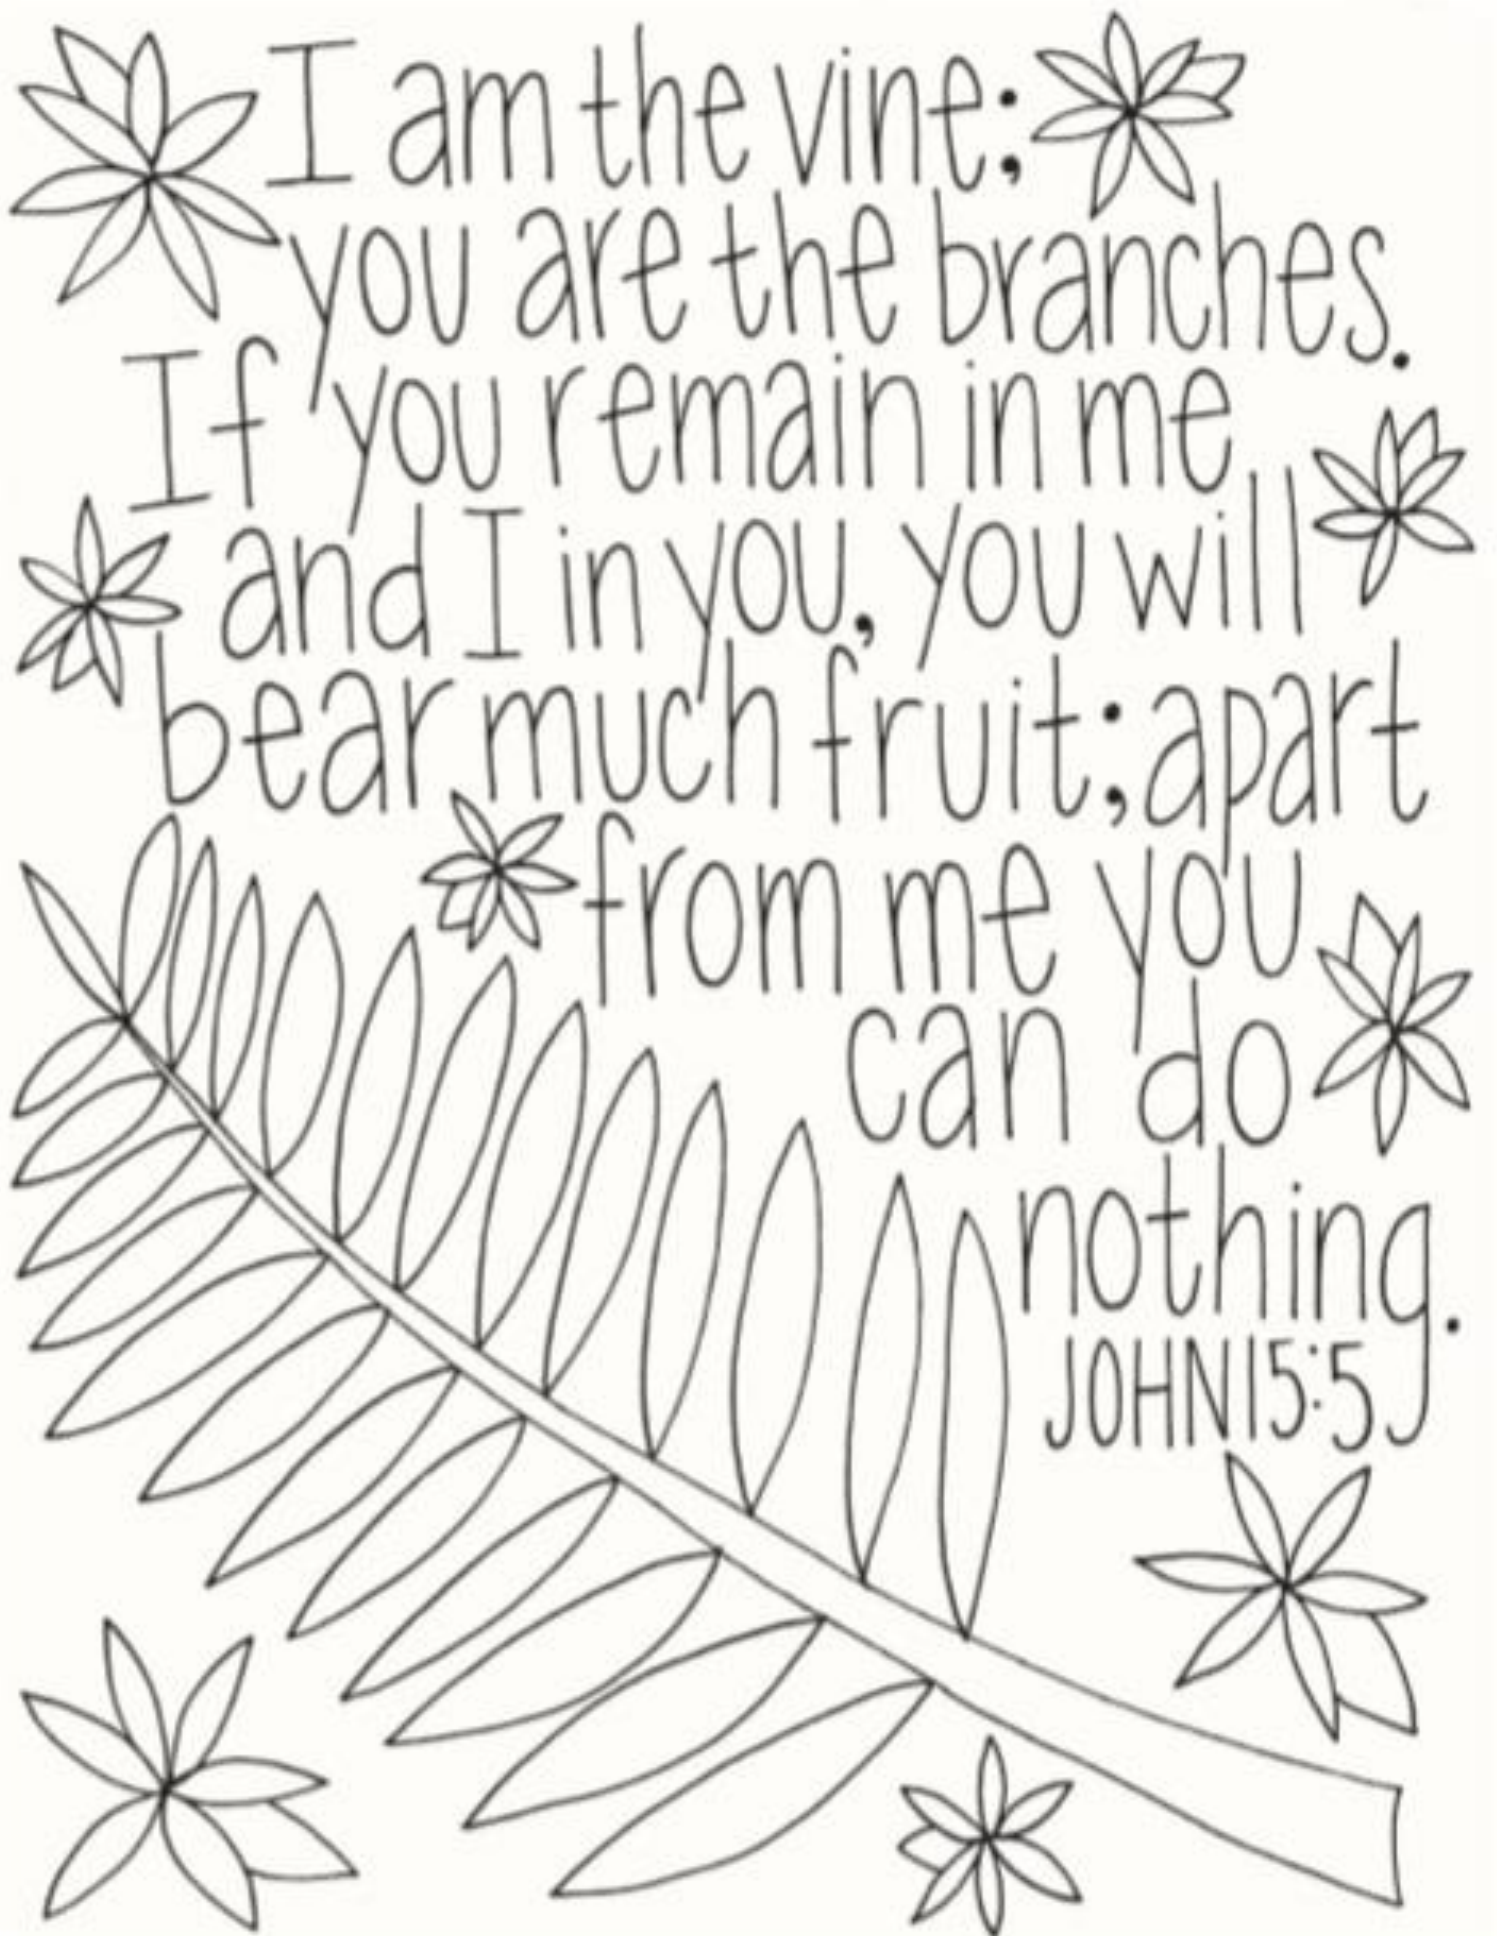 I am the vine;
you are the branches.
If you remain in me
and I in you, you will
bear much fruit; apart
from me you
can do
nothing.
JOHN 15:5